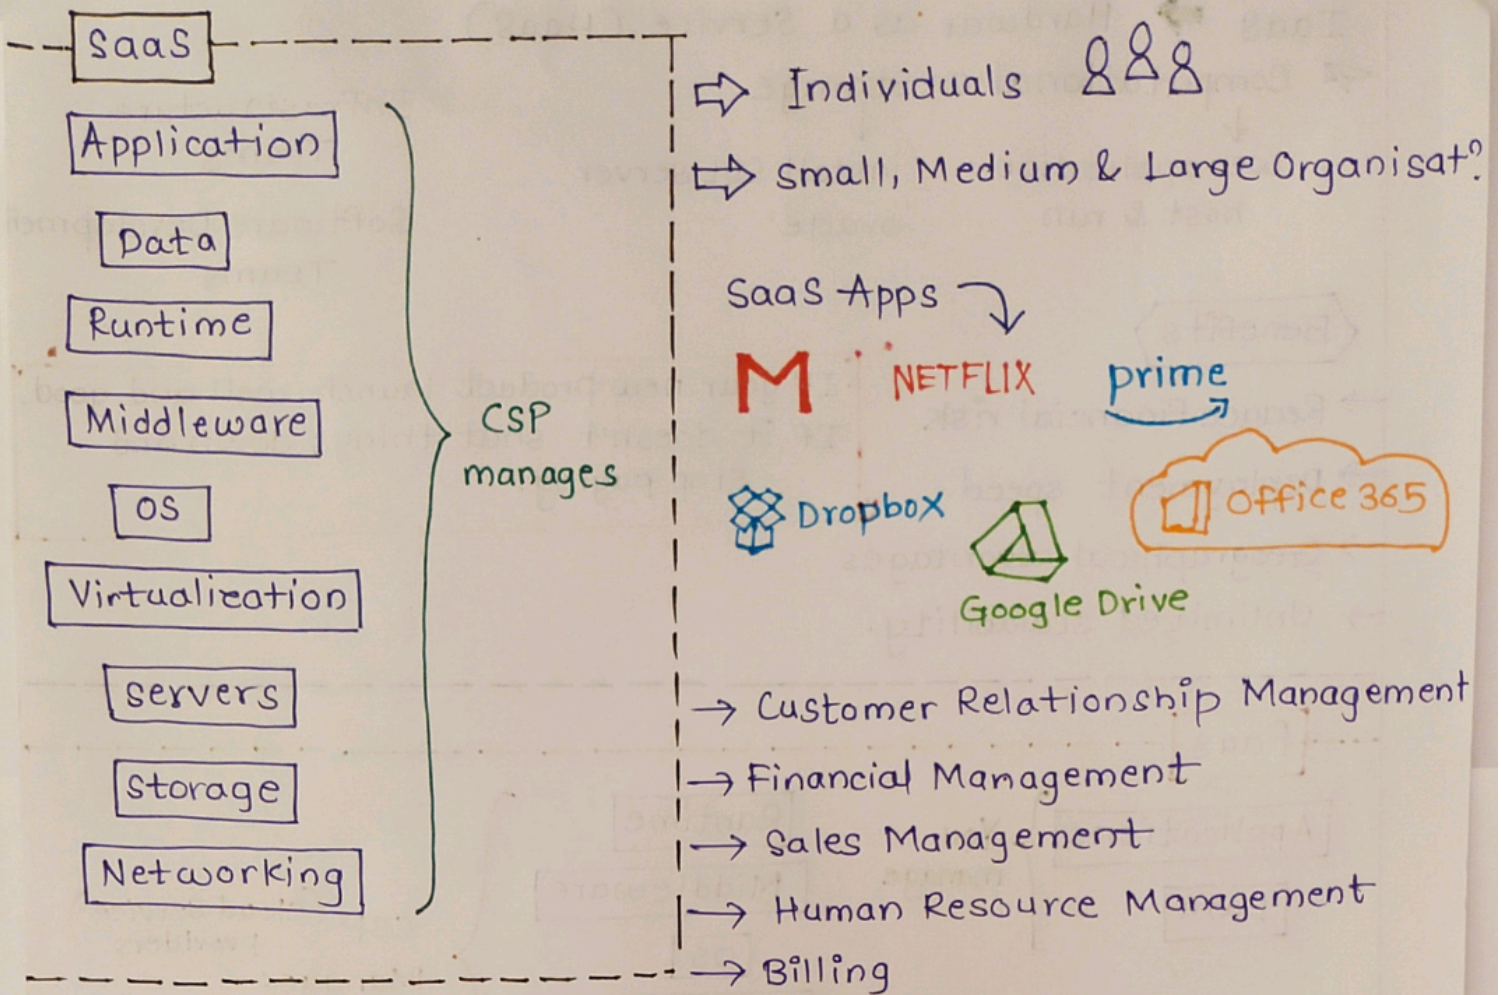 SaaS
Application
Data
Runtime
Middleware
OS
Virtualization
Servers
Storage
Networking
CSP
manages
Individuals
Small, Medium & Large Organisat?
SaaS Apps
M
NETFLIX
prime
Dropbox
Office 365
Google Drive
→ Customer Relationship Management
→ Financial Management
→ Sales Management
→ Human Resource Management
→ Billing